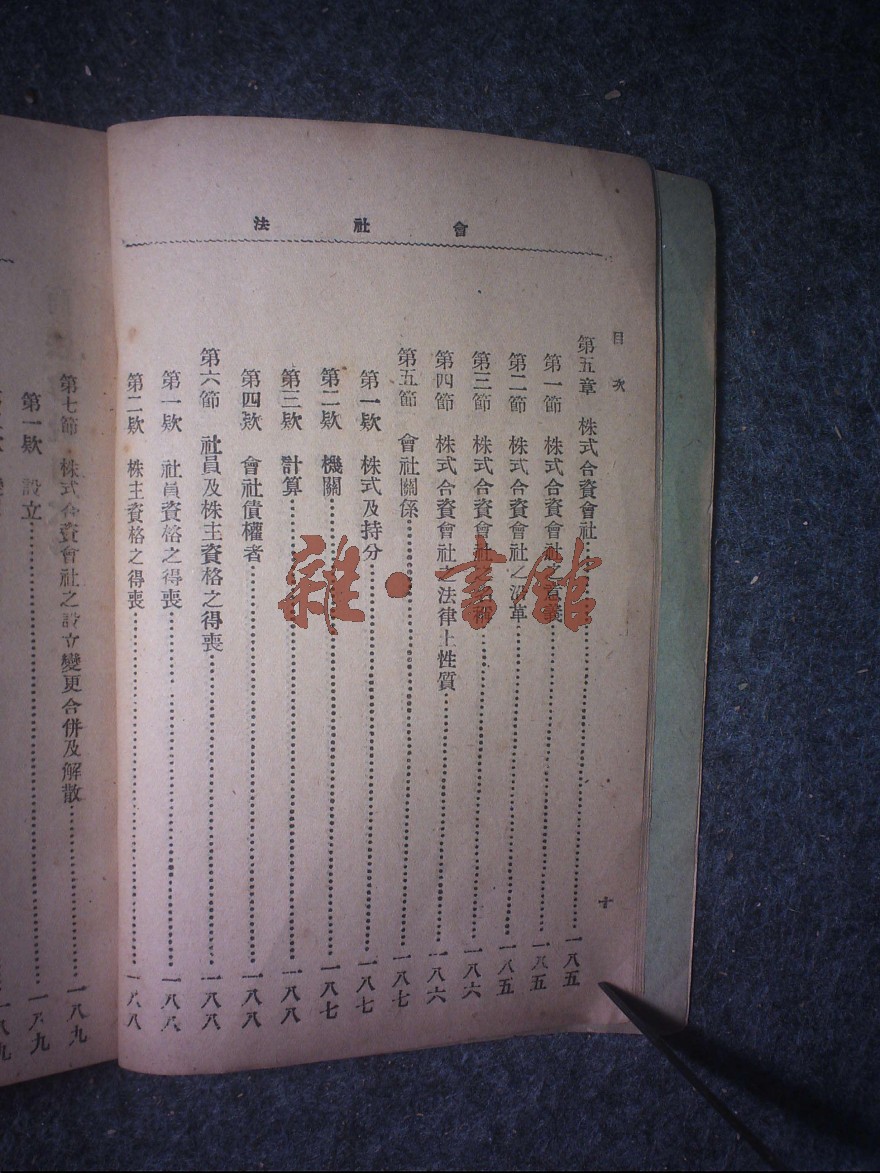 會社法
目次 十
第五章 株式合資會社……一八五
第一節 株式合資會社之意義……一八五
第二節 株式合資會社之沿革……一八五
第三節 株式合資會社……一八六
第四節 株式合資會社之法律上性質……一八六
第五節 會社關係……一八七
第一欵 株式及持分……一八七
第二欵 機關……一八七
第三欵 計算……一八八
第四欵 會社債權者……一八八
第六節 社員及株主資格之得喪……一八八
第一欵 社員資格之得喪……一八八
第二欵 株主資格之得喪……一八八
第七節 株式合資會社之設立變更合併及解散……一八九
第一欵 設立……一八九
雜·書館